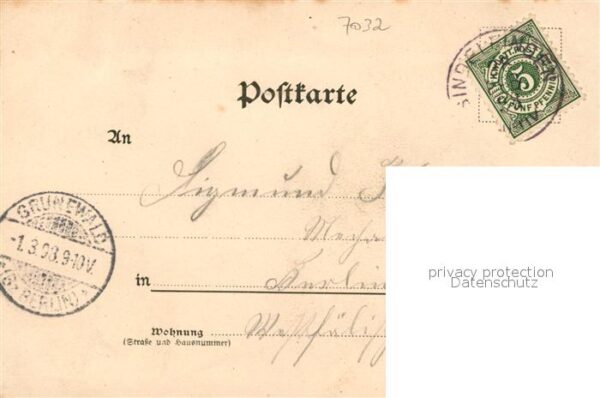 7032
SINDELFINGEN
5
FÜNF PFENNIG
Postkarte
An
Sigmund
GRUNEWALD
-1.3.98.9-10V.
(Bz. BERLIN)
in Berlin
Wohnung
(Straße und Hausnummer)
Westfälisch
privacy protection
Datenschutz